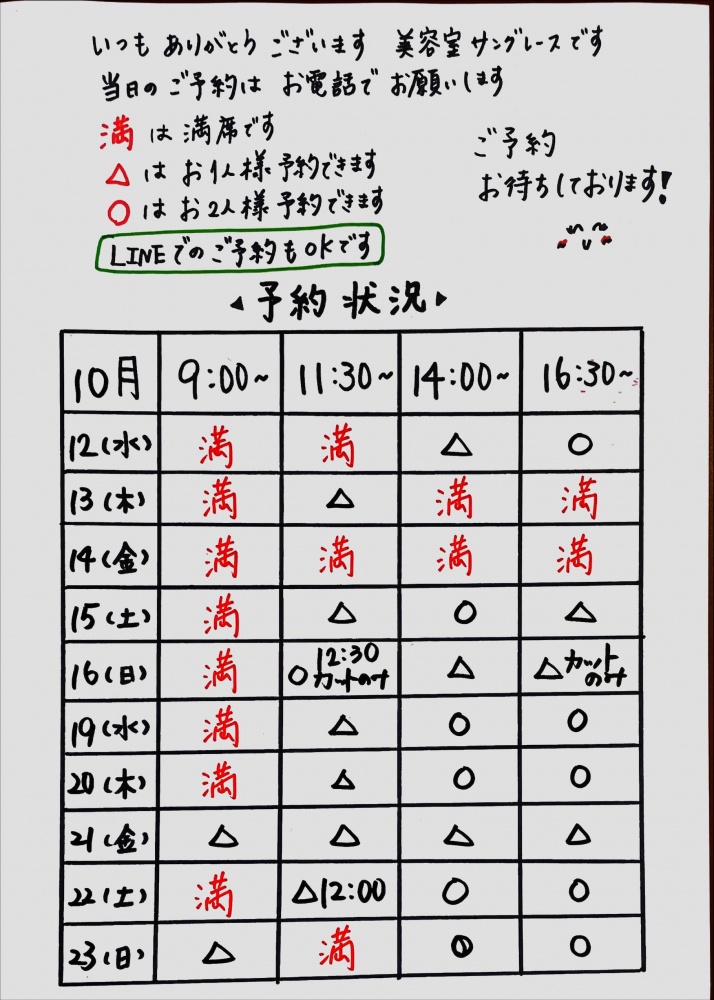 いつも ありがとう ございます 美容室 サングレースです
当日の ご予約は お電話で お願いします
満 は 満席です
△ は お1人様 予約できます
○ は お2人様 予約できます
ご予約
お待ちしております!
LINEでの ご予約も OKです
◀ 予約 状況 ▶
10月 9:00~ 11:30~ 14:00~ 16:30~
12(水) 満 満 △ ○
13(木) 満 △ 満 満
14(金) 満 満 満 満
15(土) 満 △ ○ △
16(日) 満 ○ 12:30 カットのみ △ △ カットのみ
19(水) 満 △ ○ ○
20(木) 満 △ ○ ○
21(金) △ △ △ △
22(土) 満 △12:00 ○ ○
23(日) △ 満 ○ ○